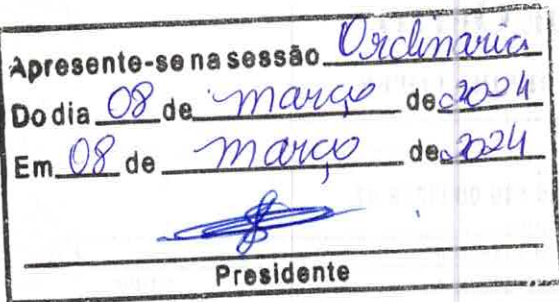 Apresente-se na sessão Ordinaria
Do dia 08 de março de 2024
Em 08 de março de 2024
Presidente